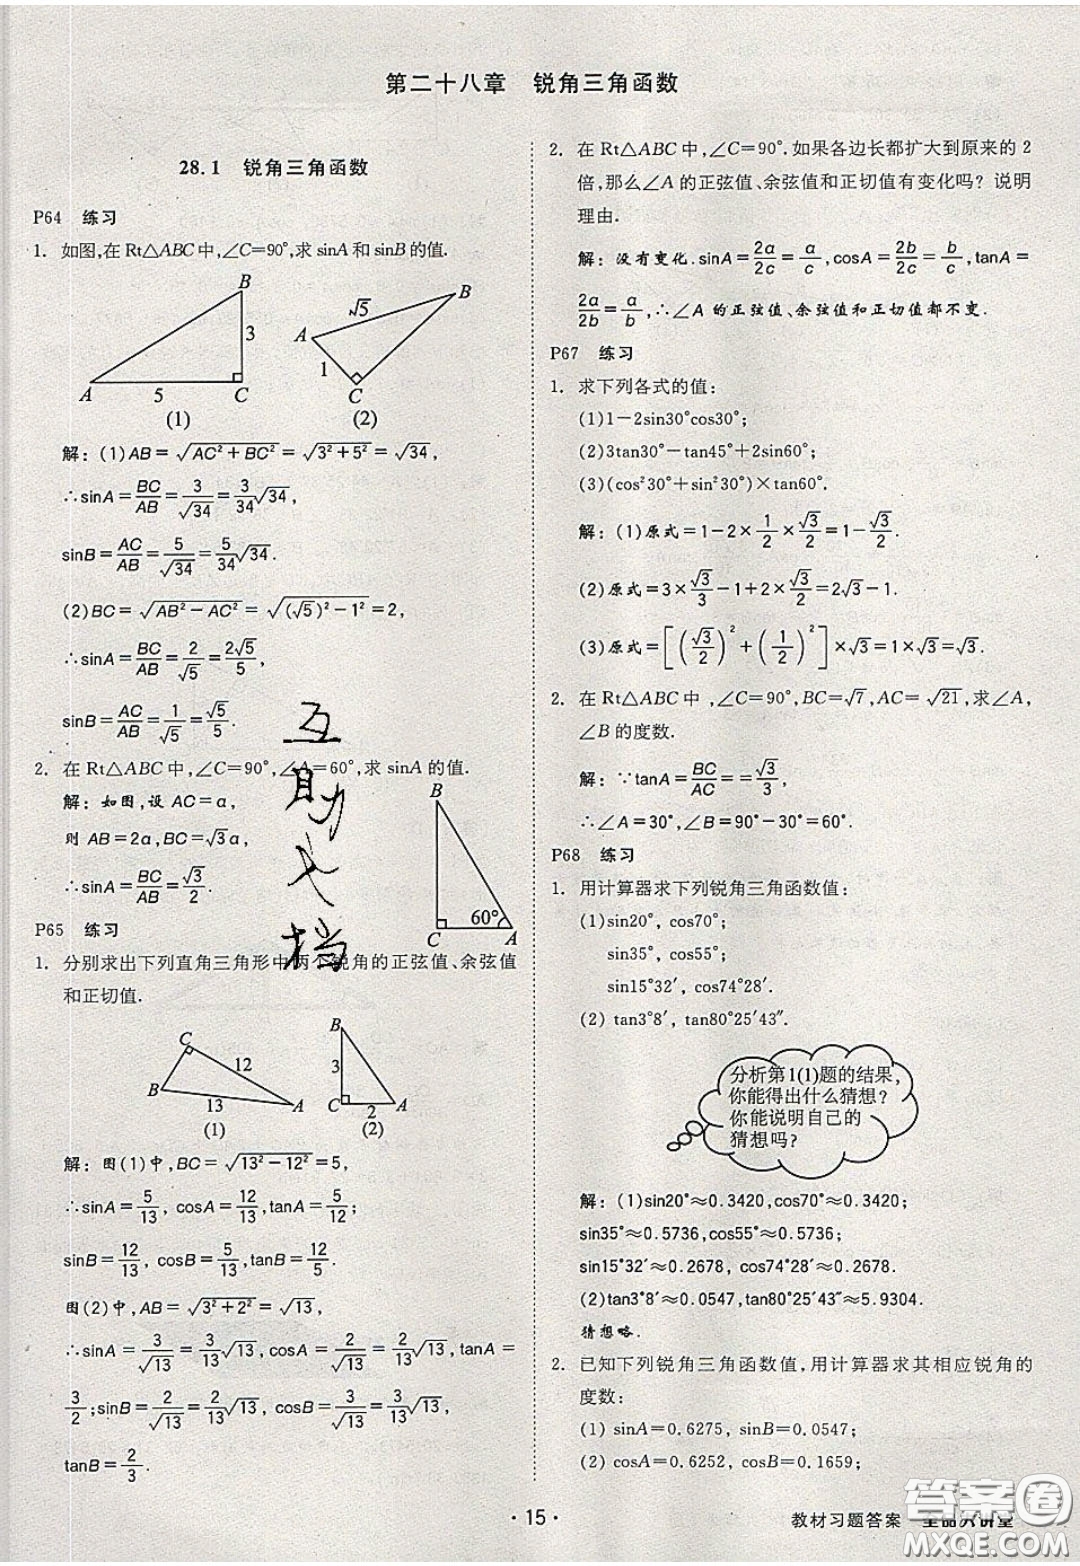 第二十八章 锐角三角函数
28.1 锐角三角函数
P64 练习
1. 如图,在Rt△ABC中,∠C=90°,求sinA和sinB的值.
B
3
A
5
C
(1)
B
√5
A
1
C
(2)
解:(1)AB=√(AC²+BC²)=√(3²+5²)=√34,
∴sinA=BC/AB=3/√34=3/34√34,
sinB=AC/AB=5/√34=5/34√34.
(2)BC=√(AB²-AC²)=√((√5)²-1²)=2,
∴sinA=BC/AB=2/√5=2√5/5,
sinB=AC/AB=1/√5=√5/5.
2. 在Rt△ABC中,∠C=90°,∠A=60°,求sinA的值.
解:如图,设AC=a,
则AB=2a,BC=√3a,
∴sinA=BC/AB=√3/2.
B
60°
C
A
互
助
文
档
P65 练习
1. 分别求出下列直角三角形中两个锐角的正弦值、余弦值
和正切值.
C
12
B
13
A
(1)
B
3
C
2
A
(2)
解:图(1)中,BC=√(13²-12²)=5,
∴sinA=5/13,cosA=12/13,tanA=5/12;
sinB=12/13,cosB=5/13,tanB=12/5.
图(2)中,AB=√(3²+2²)=√13,
∴sinA=3/√13=3/13√13,cosA=2/√13=2/13√13,tanA=
3/2;sinB=2/√13=2/13√13,cosB=3/√13=3/13√13,
tanB=2/3.
2. 在Rt△ABC中,∠C=90°.如果各边长都扩大到原来的2
倍,那么∠A的正弦值、余弦值和正切值有变化吗?说明
理由.
解:没有变化.sinA=2a/2c=a/c,cosA=2b/2c=b/c,tanA=
2a/2b=a/b,∴∠A的正弦值、余弦值和正切值都不变.
P67 练习
1. 求下列各式的值:
(1)1-2sin30°cos30°;
(2)3tan30°-tan45°+2sin60°;
(3)(cos²30°+sin²30°)×tan60°.
解:(1)原式=1-2×1/2×√3/2=1-√3/2.
(2)原式=3×√3/3-1+2×√3/2=2√3-1.
(3)原式=[(√3/2)²+(1/2)²]×√3=1×√3=√3.
2. 在Rt△ABC中,∠C=90°,BC=√7,AC=√21,求∠A,
∠B的度数.
解:∵tanA=BC/AC=√3/3,
∴∠A=30°,∠B=90°-30°=60°.
P68 练习
1. 用计算器求下列锐角三角函数值:
(1)sin20°, cos70°;
sin35°, cos55°;
sin15°32′, cos74°28′;
(2) tan3°8′, tan80°25′43″.
分析第1(1)题的结果,
你能得出什么猜想?
你能说明自己的
猜想吗?
解:(1)sin20°≈0.3420,cos70°≈0.3420;
sin35°≈0.5736,cos55°≈0.5736;
sin15°32′≈0.2678,cos74°28′≈0.2678.
(2)tan3°8′≈0.0547,tan80°25′43″≈5.9304.
猜想略.
2. 已知下列锐角三角函数值,用计算器求其相应锐角的
度数:
(1) sinA=0.6275, sinB=0.0547;
(2) cosA=0.6252, cosB=0.1659;
· 15 ·
教材习题答案
答案圈
MXQE.COM